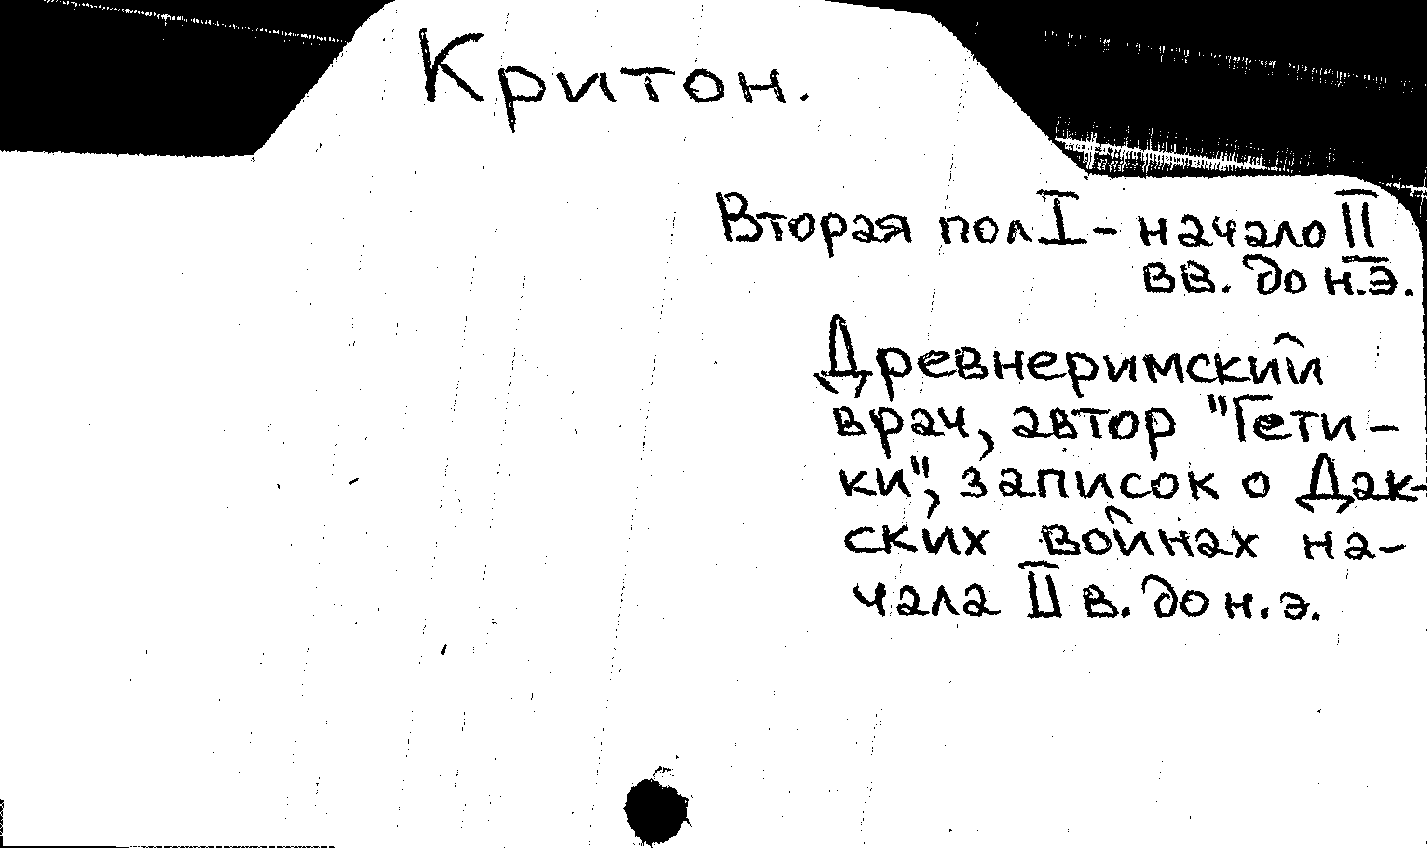 Критон.
Вторая пол I - начало II
вв. до н.э.
Древнеримский
врач, автор "Гети-
ки", записок о Дак-
ских войнах на-
чала II в. до н.э.